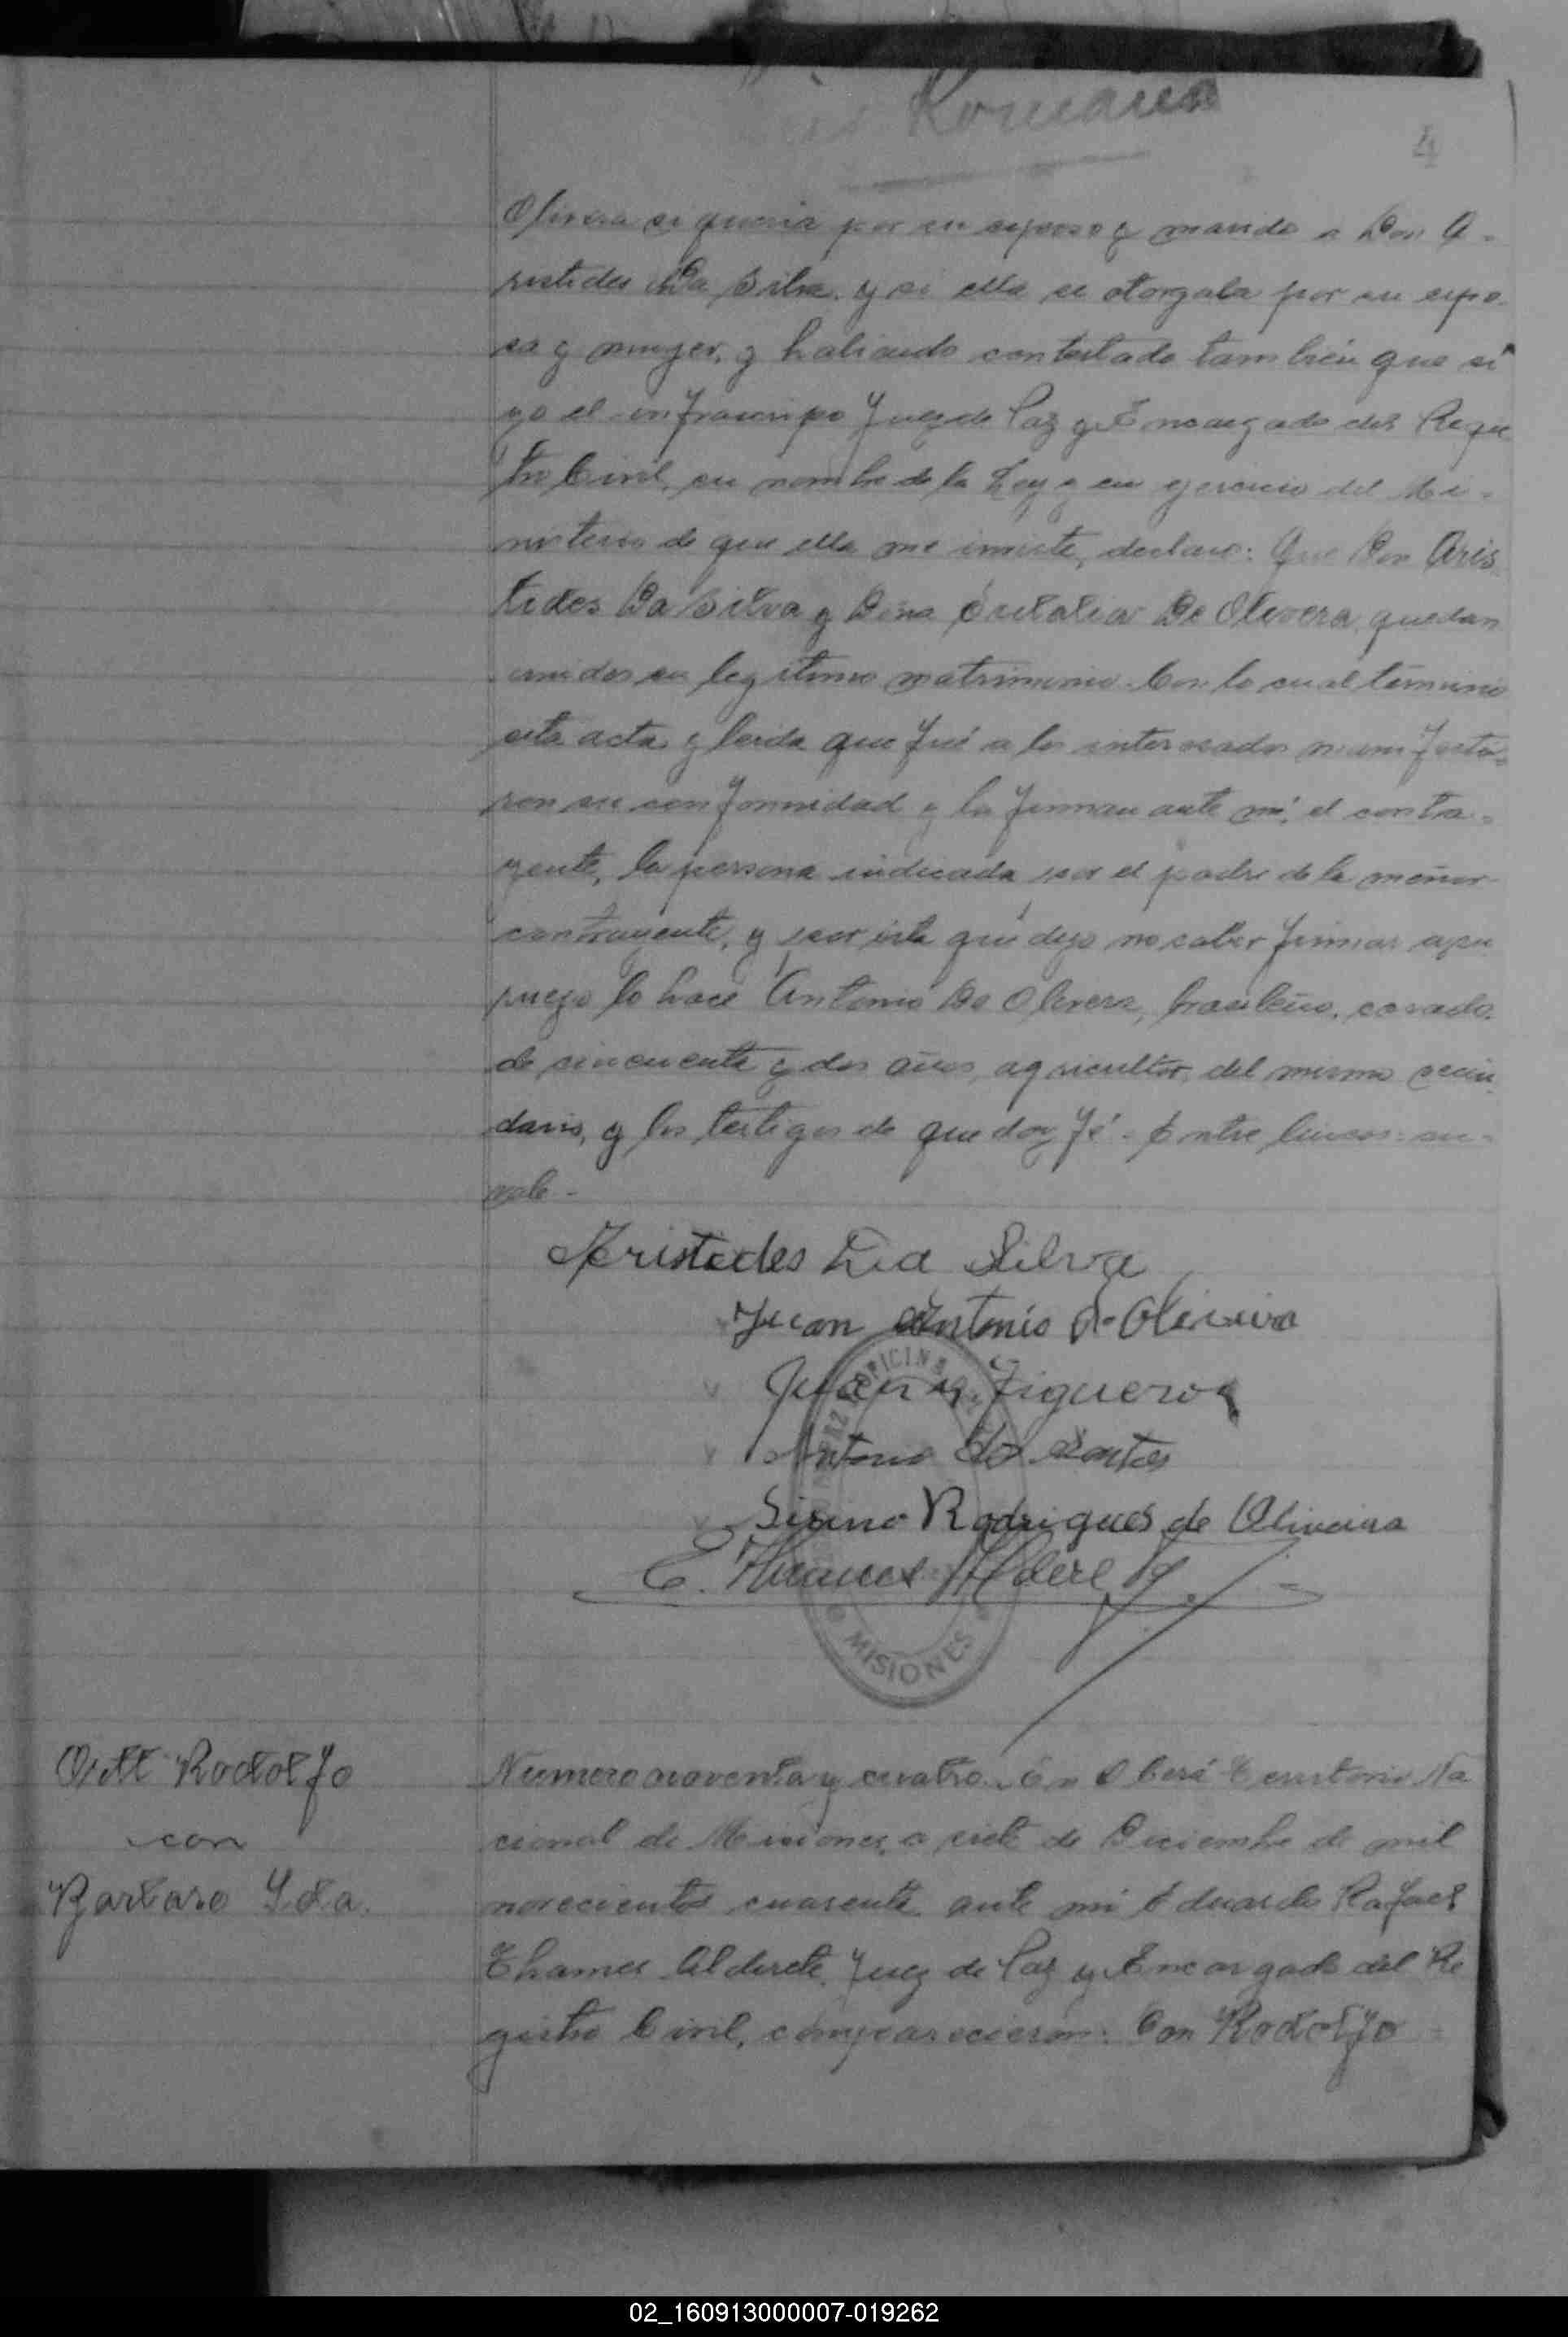 Romano
4
Olivera si queria por su esposo y marido a Don A-
ristides Da Silva, y si ella se otorgaba por su espo-
sa y mujer, y habiendo contestado también que sí
yo el infrascripto Juez de Paz y Encargado del Regis
tro Civil, en nombre de la Ley y en ejercicio del Mi-
nisterio de que ella me inviste, declaro: Que Don Aris
tides Da Silva y Doña Eulalia De Olivera, quedan
unidos en legítimo matrimonio. Con lo cual terminó
esta acta y leida que fué a los interesados manifesta-
ron su conformidad y la firman ante mí, el contra-
yente, la persona indicada por el padre de la menor
contrayente, y por ésta que dijo no saber firmar a su
ruego lo hace Antonio De Olivera, brasileño, casado,
de cincuenta y dos años, agricultor, del mismo vecin
dario, y los testigos de que doy fé. Entre lineas: su-
vale-
Aristides Da Silva
Juan Antonio de Oliveira
Juan Figueroa
Antonio dos Santos
Rodrigues de Oliveira
E. Thames Alderete
OFICINA
MISIONES
Ott Rodolfo
con
Barbaro Lda.
Numero noventa y cuatro. En Oberá Territorio Na
cional de Misiones, a siete de Diciembre de mil
novecientos cuarenta ante mí Eduardo Rafael
Thames Alderete, Juez de Paz y Encargado del Re
gistro Civil, comparecieron: Don Rodolfo
02_160913000007-019262